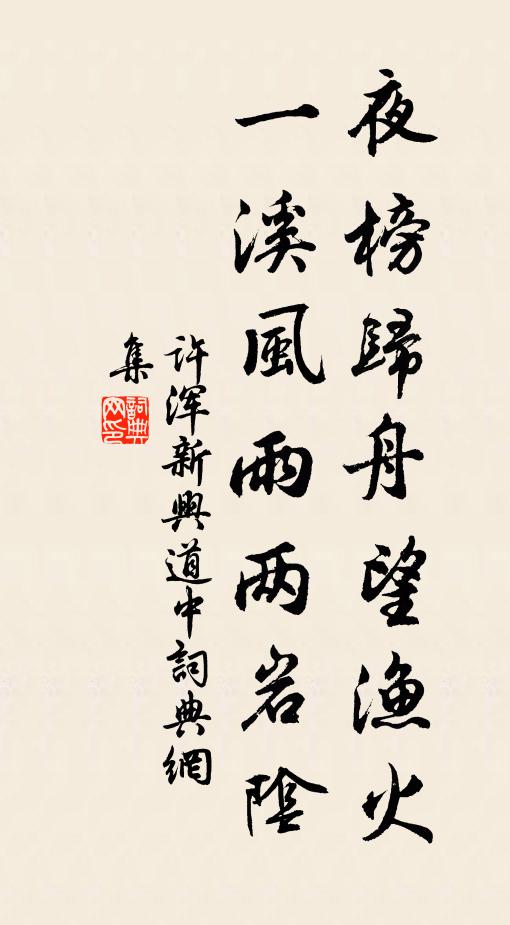 夜榜歸舟望漁火
一溪風雨两岩陰
许浑新興道中詞典網
集
詞典
网印